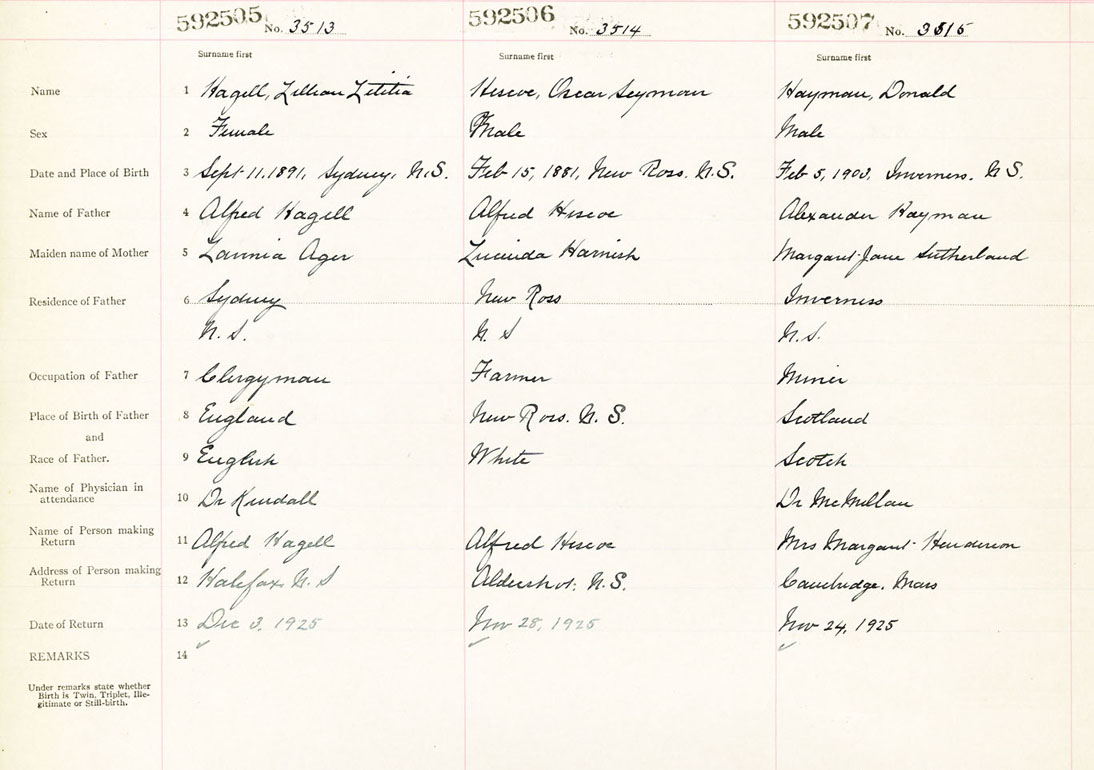 592505 No. 3513 592506 No. 3514 592507 No. 3515
Surname first Surname first Surname first
Name 1 Hagell, Lillian Letitia Hiscoe, Oscar Seymour Hayman, Donald
Sex 2 Female Male Male
Date and Place of Birth 3 Sept 11, 1891, Sydney, N.S. Feb 15, 1881, New Ross, N.S. Feb 5, 1903, Inverness, N S.
Name of Father 4 Alfred Hagell Alfred Hiscoe Alexander Hayman
Maiden name of Mother 5 Ager Lucinda Harnish Margaret Jane Sutherland
Residence of Father 6 Sydney New Ross Inverness
N. S. N. S N.S.
Occupation of Father 7 Clergyman Farmer Miner
Place of Birth of Father 8 England New Ross. N. S. Scotland
and
Race of Father. 9 English White Scotch
Name of Physician in
attendance 10 Dr Kendall Dr McMillan
Name of Person making
Return 11 Alfred Hagell Alfred Hiscoe Mrs Margaret Henderson
Address of Person making
Return 12 Halifax N. S Aldershot, N.S. Cambridge, Mass
Date of Return 13 Dec 3, 1925 Nov 28, 1925 Nov 24, 1925
REMARKS 14
Under remarks state whether
Birth is Twin, Triplet, Ille-
gitimate or Still-birth.